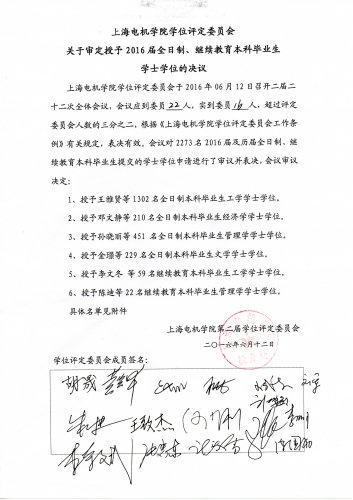 上海电机学院学位评定委员会
关于审定授予2016届全日制、继续教育本科毕业生
学士学位的决议
上海电机学院学位评定委员会于2016年06月12日召开二届二
十二次全体会议，会议应到委员22人，实到委员16人，超过评定
委员会人数的三分之二，根据《上海电机学院学位评定委员会工作条
例》有关规定，表决有效。会议对2273名2016届及历届全日制、继
续教育本科毕业生提交的学士学位申请进行了审议并表决。会议审议
决定：
1、授予王雅贤等1302名全日制本科毕业生工学学士学位。
2、授予邓文静等210名全日制本科毕业生经济学学士学位。
3、授予孙晓丽等451名全日制本科毕业生管理学学士学位。
4、授予金璟等229名全日制本科毕业生文学学士学位。
5、授予李文冬等59名继续教育本科毕业生工学学士学位。
6、授予陈迪等22名继续教育本科毕业生管理学学士学位。
具体名单见附件
上海电机学院第二届学位评定委员会
二〇一六年六月十二日
学位评定委员会成员签名：
胡晟